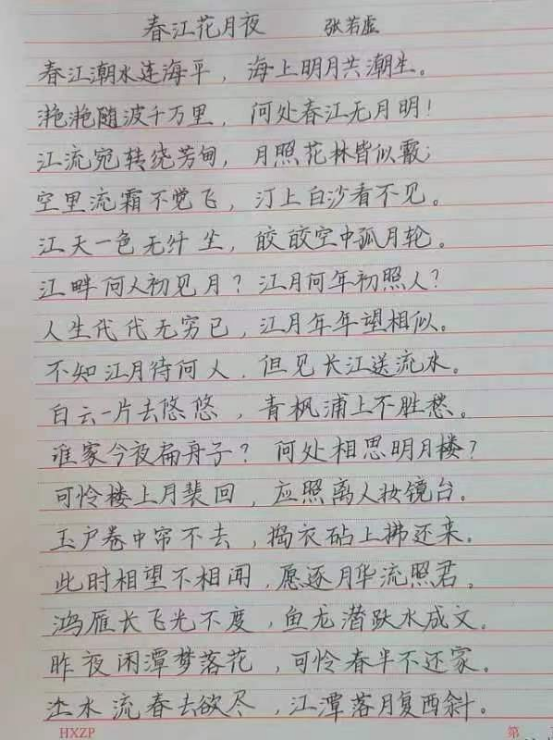 春江花月夜 张若虚
春江潮水连海平，海上明月共潮生。
滟滟随波千万里，何处春江无月明！
江流宛转绕芳甸，月照花林皆似霰；
空里流霜不觉飞，汀上白沙看不见。
江天一色无纤尘，皎皎空中孤月轮。
江畔何人初见月？江月何年初照人？
人生代代无穷已，江月年年望相似。
不知江月待何人，但见长江送流水。
白云一片去悠悠，青枫浦上不胜愁。
谁家今夜扁舟子？何处相思明月楼？
可怜楼上月裴回，应照离人妆镜台。
玉户卷中帘不去，捣衣砧上拂还来。
此时相望不相闻，愿逐月华流照君。
鸿雁长飞光不度，鱼龙潜跃水成文。
昨夜闲潭梦落花，可怜春半不还家。
江水流春去欲尽，江潭落月复西斜。
HXZP 第